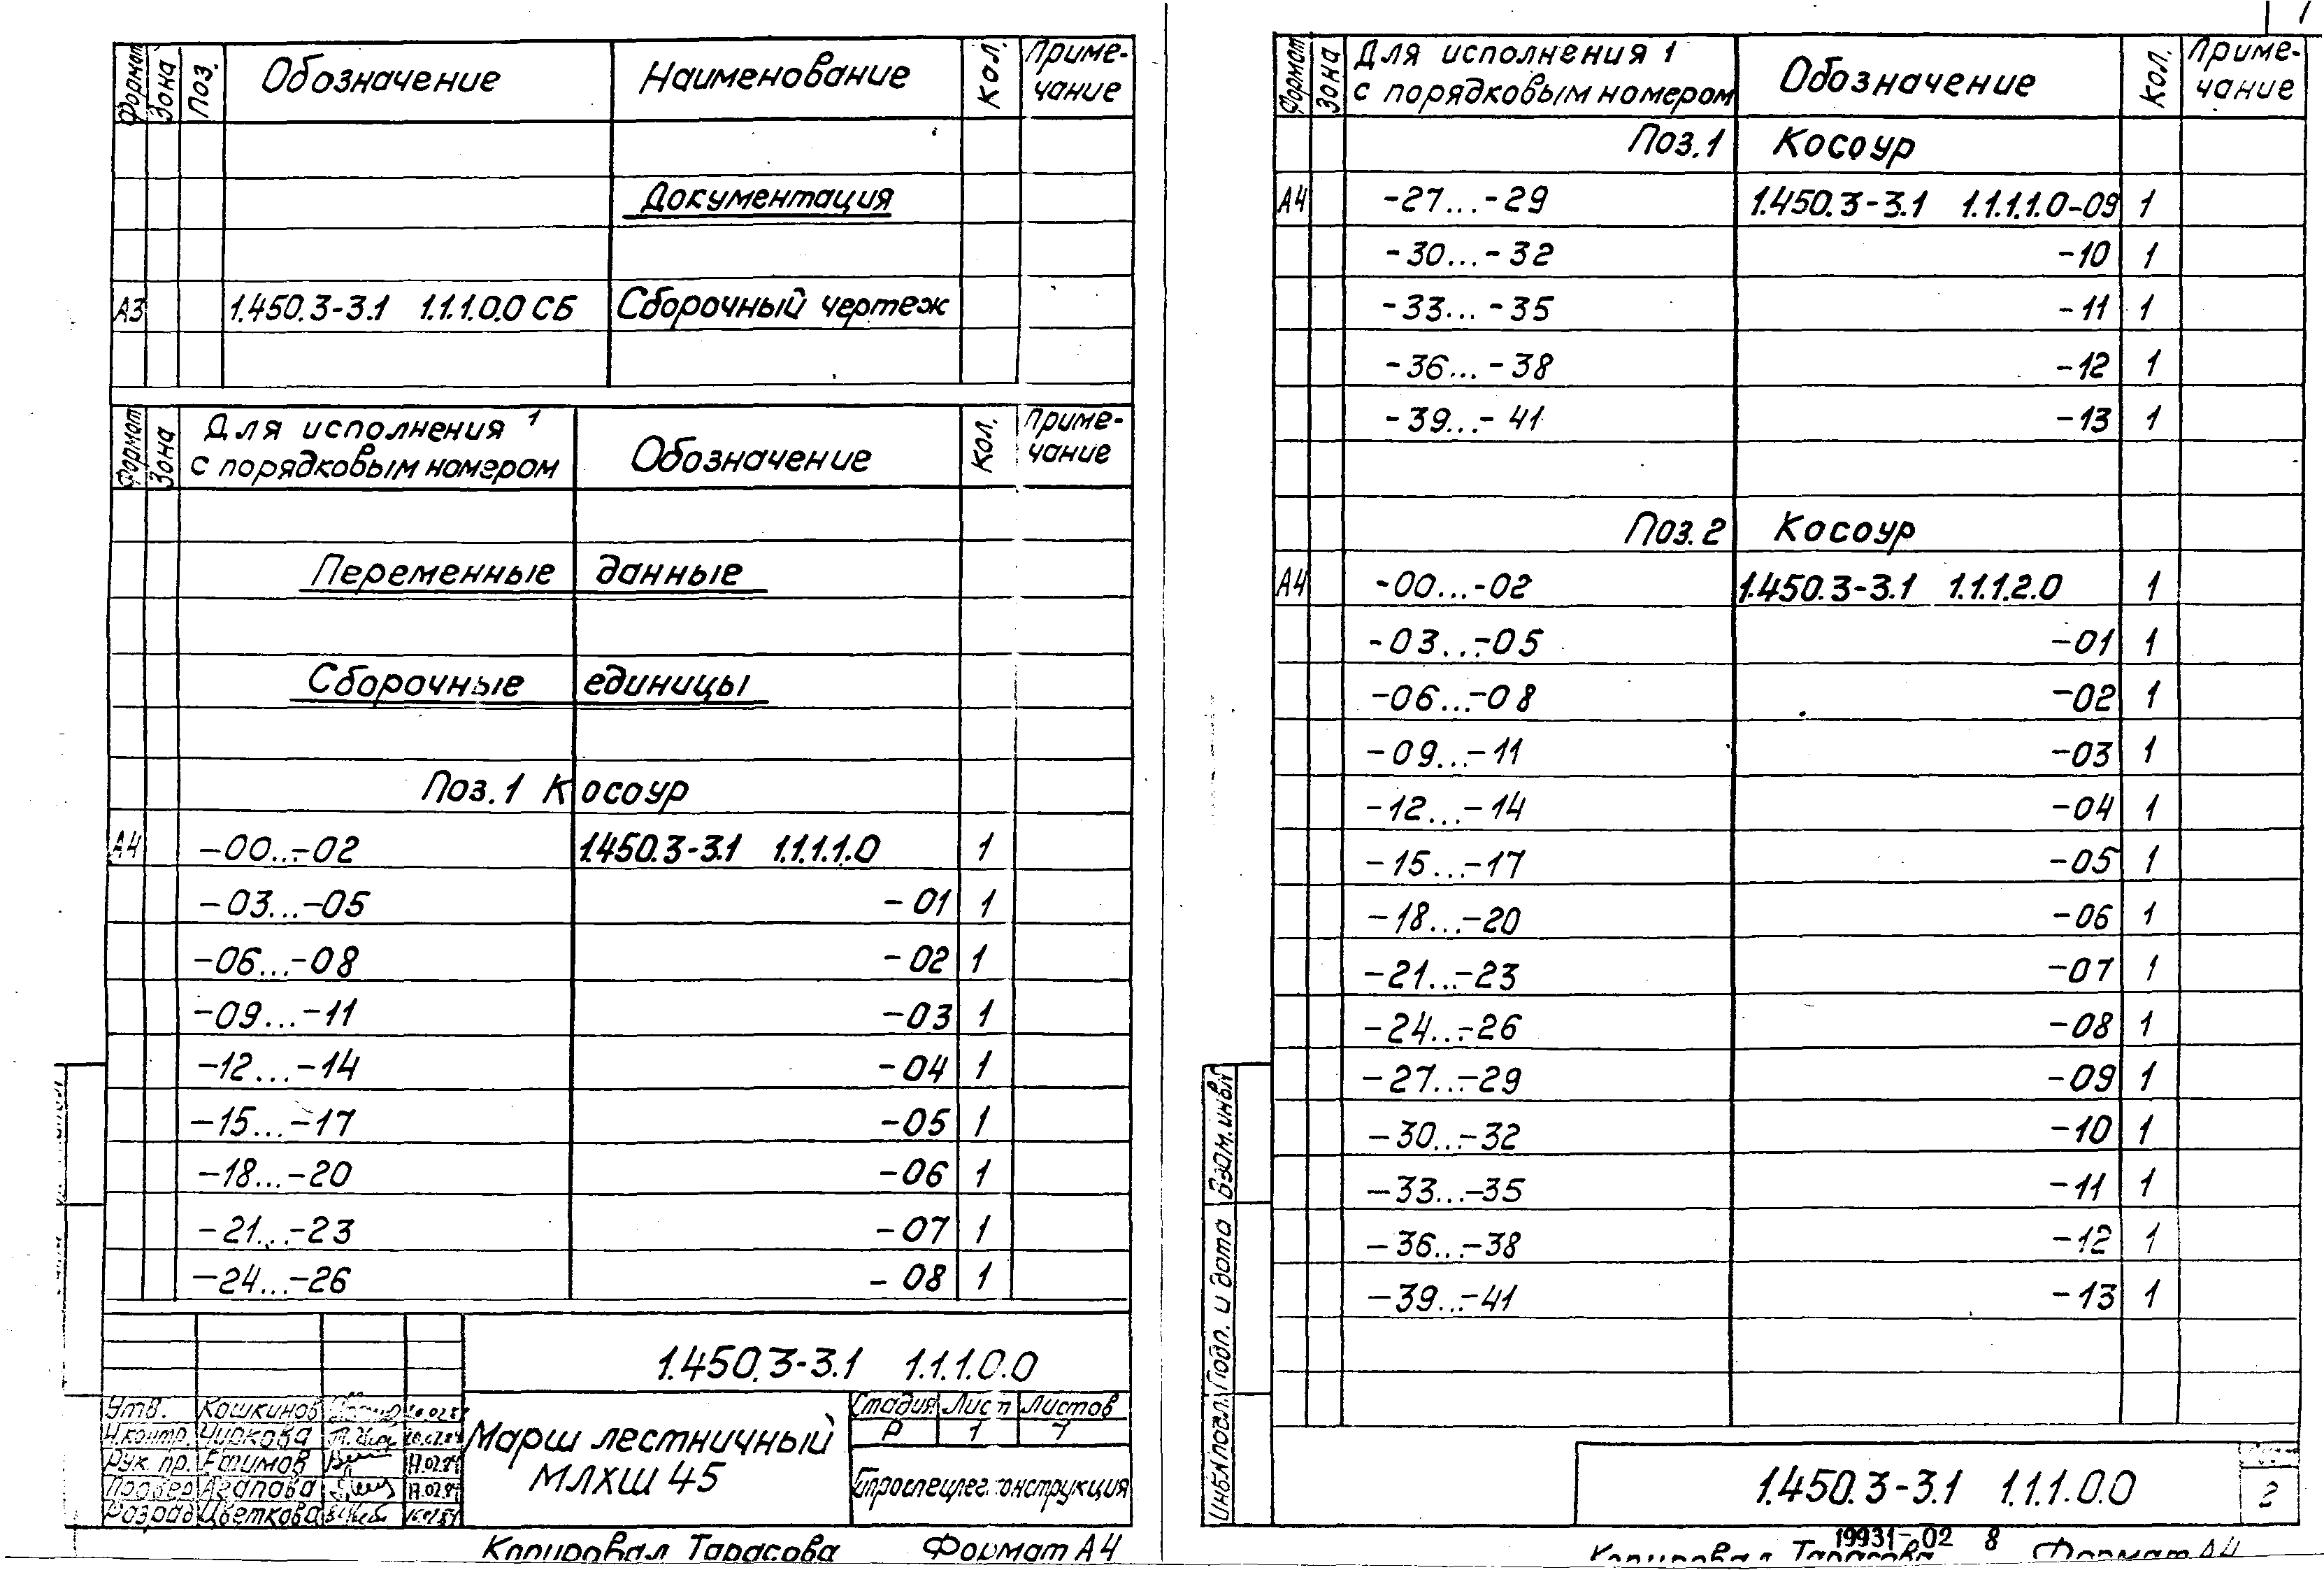 Формат Зона Поз. Обозначение Наименование Кол. Приме-
чание
Документация
А3 1.450.3-3.1 1.1.1.0.0 СБ Сборочный чертеж
Формат Зона Для исполнения 1 Обозначение Кол. Приме-
с порядковым номером чание
Переменные данные
Сборочные единицы
Поз.1 Косоур
А4 -00...-02 1.450.3-3.1 1.1.1.1.0 1
-03...-05 -01 1
-06...-08 -02 1
-09...-11 -03 1
-12...-14 -04 1
-15...-17 -05 1
-18...-20 -06 1
-21...-23 -07 1
-24...-26 -08 1
1.450.3-3.1 1.1.1.0.0
Утв. Кошкинов
Н.контр. Чиркова
Рук. пр. Ефимов 17.02.84
Провер Агапова 17.02.84
Разраб Цветкова
Марш лестничный
МЛХШ 45
Стадия Лист Листов
Р 1 7
Копировал Тарасова Формат А4
1
Формат Зона Для исполнения 1 Обозначение Кол. Приме-
с порядковым номером чание
Поз.1 Косоур
А4 -27...-29 1.450.3-3.1 1.1.1.1.0-09 1
-30...-32 -10 1
-33...-35 -11 1
-36...-38 -12 1
-39...-41 -13 1
Поз.2 Косоур
А4 -00...-02 1.450.3-3.1 1.1.1.2.0 1
-03...-05 -01 1
-06...-08 -02 1
-09...-11 -03 1
-12...-14 -04 1
-15...-17 -05 1
-18...-20 -06 1
-21...-23 -07 1
-24...-26 -08 1
-27...-29 -09 1
-30...-32 -10 1
-33...-35 -11 1
-36...-38 -12 1
-39...-41 -13 1
Инв.№подл. Подп. и дата Взам.инв.№
1.450.3-3.1 1.1.1.0.0
2
19931-02 8
Копировал Тарасова Формат А4